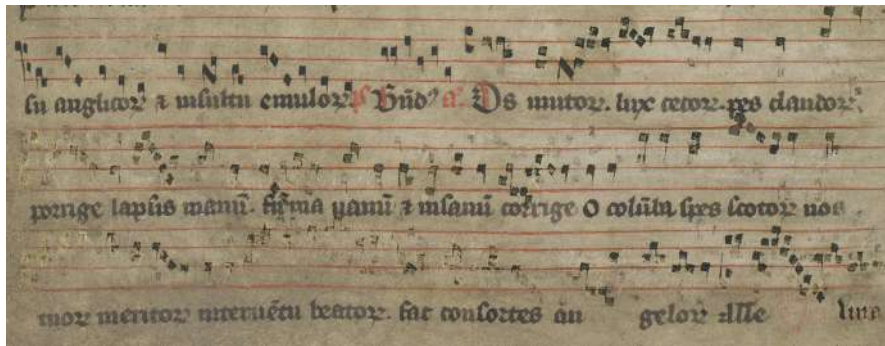 su anglicoꝝ ⁊ insultu emuloꝝ p̄s Bñd⁹ aᵃ Os mutoꝝ. lux cecoꝝ. pes claudoꝝ.
porrige lapsis manū. firma vanū ⁊ insanū corrige O colūba spes scotoꝝ nos
tuoꝝ meritoꝝ interuētu beatoꝝ. fac consortes an geloꝝ alle luya